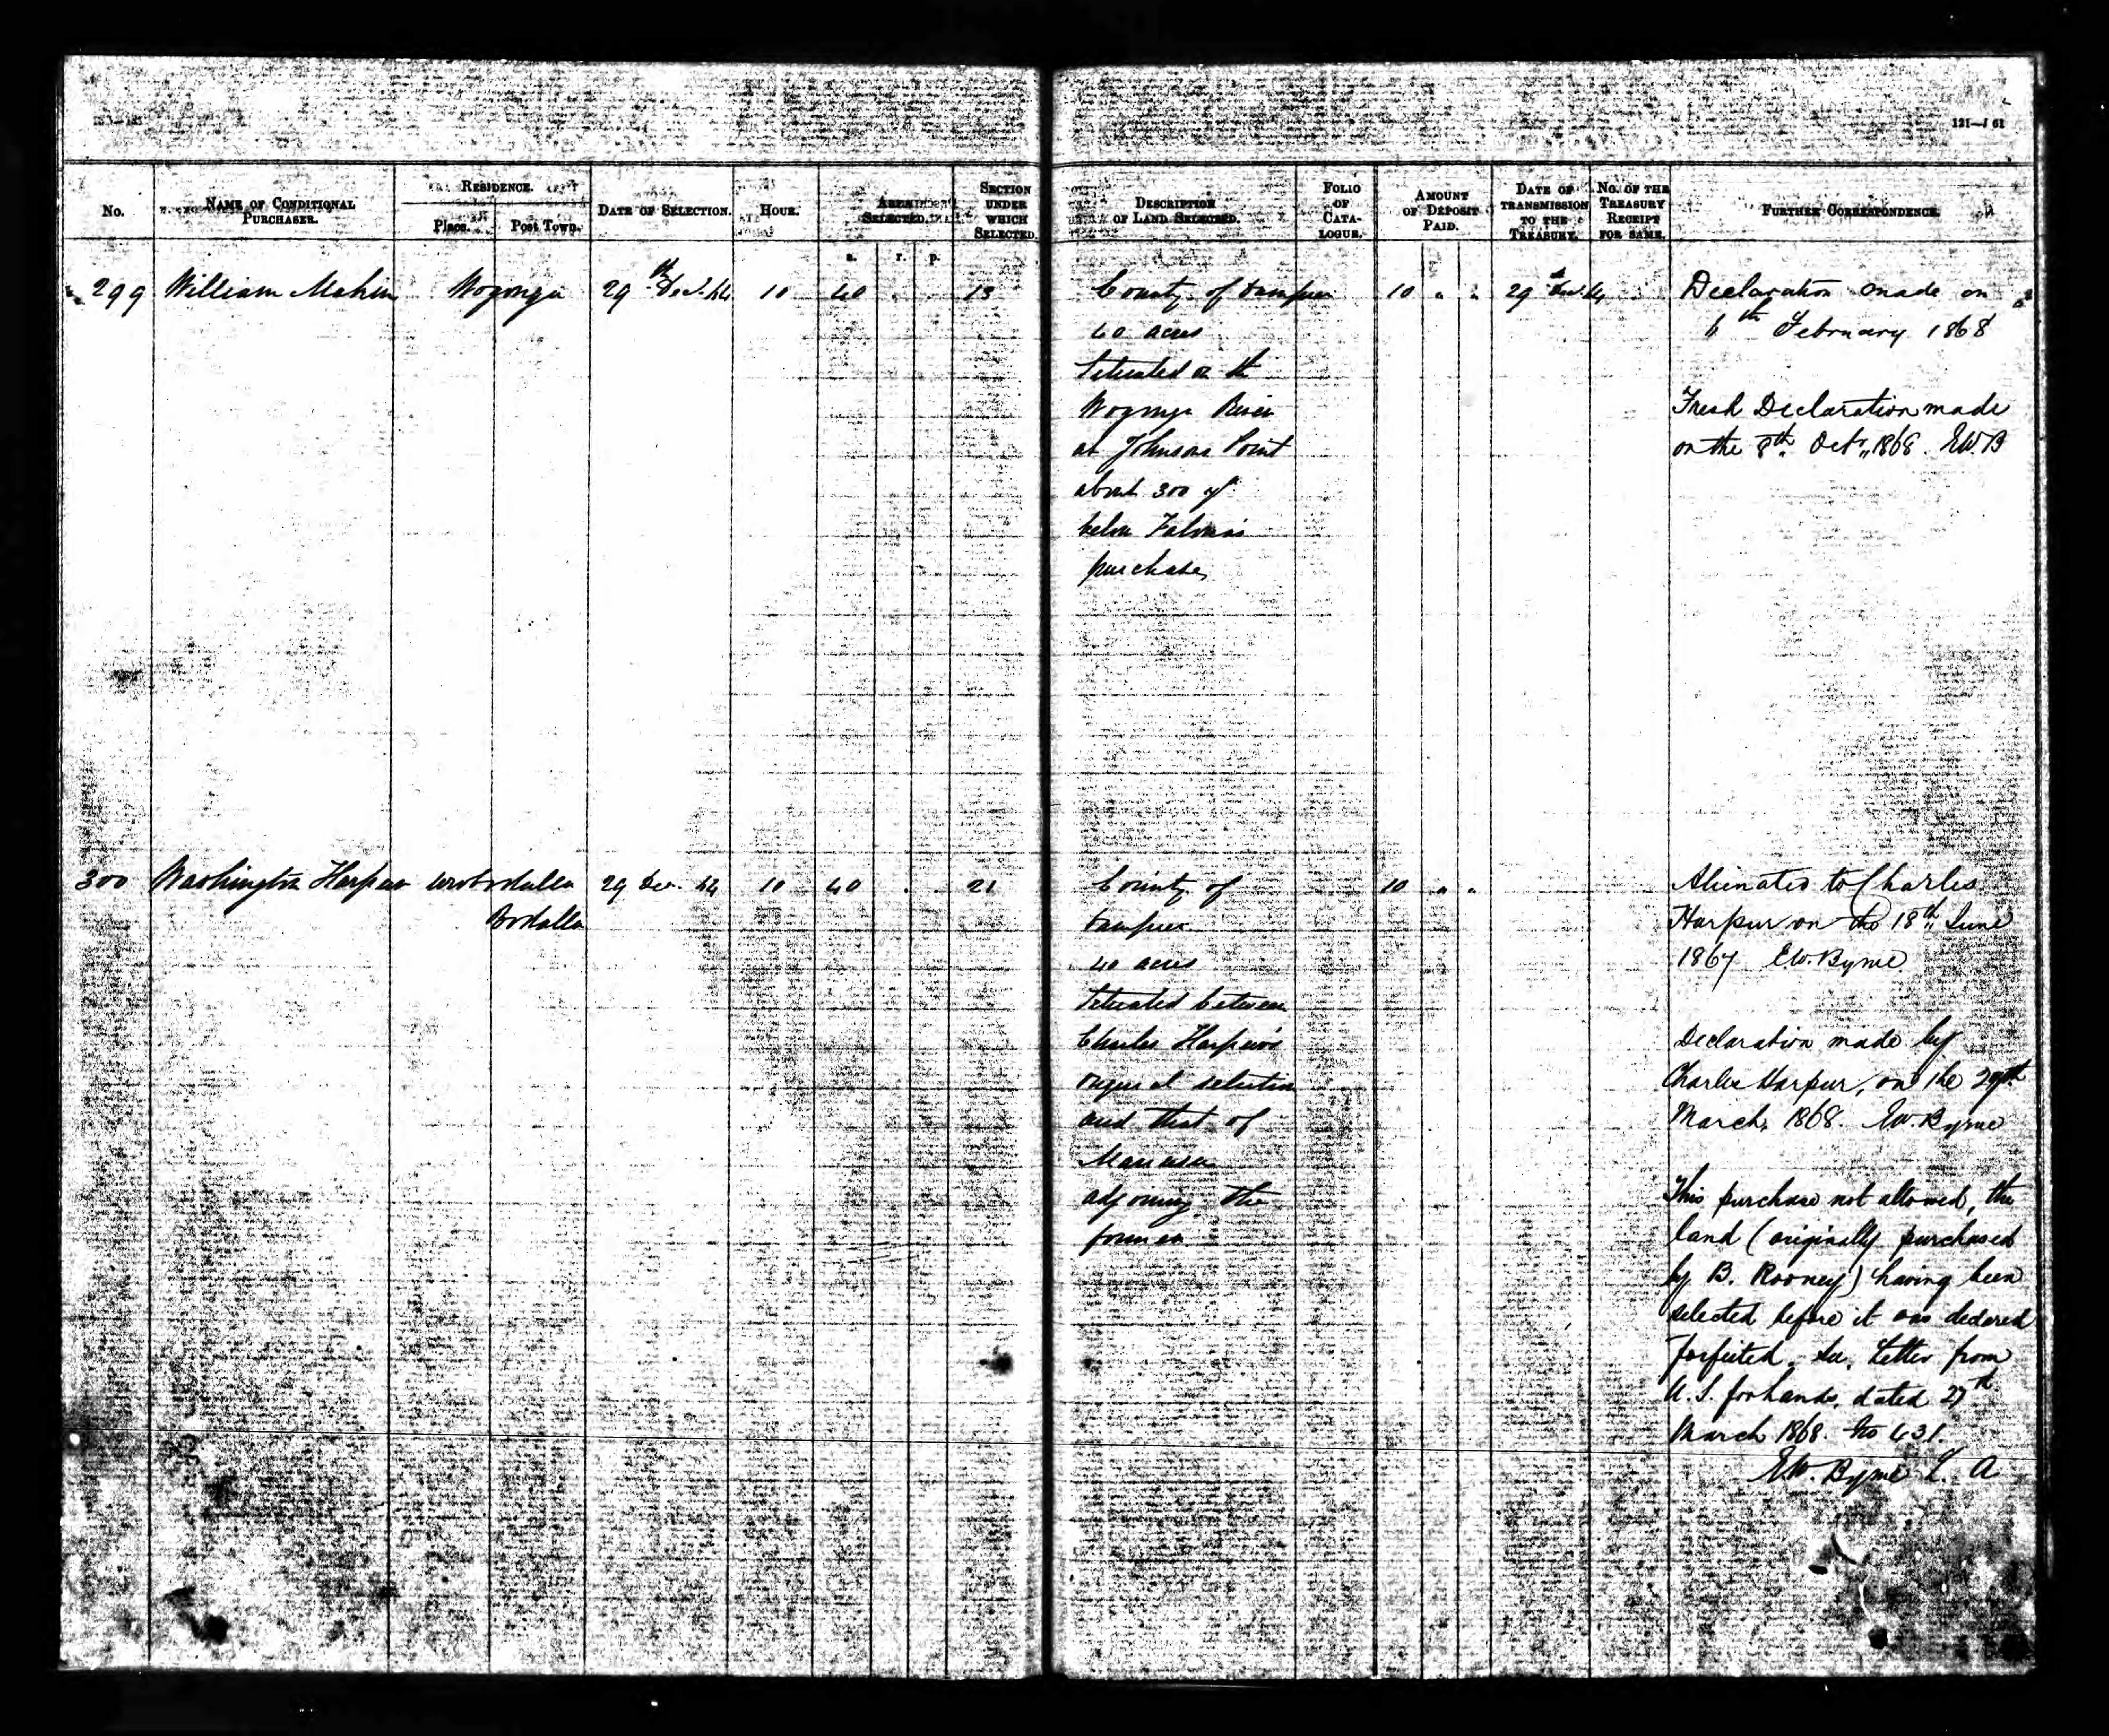 121—/ 61
No.
NAME OF CONDITIONAL PURCHASER.
RESIDENCE.
Place. Post Town.
DATE OF SELECTION.
HOUR.
AREA SELECTED.
a. r. p.
SECTION UNDER WHICH SELECTED.
DESCRIPTION OF LAND SELECTED.
FOLIO OF CATA-LOGUE.
AMOUNT OF DEPOSIT PAID.
DATE OF TRANSMISSION TO THE TREASURY.
No. OF THE TREASURY RECEIPT FOR SAME.
FURTHER CORRESPONDENCE.
299 William Wogonga 29th Dec. 64 10 40 13
County of Dampier 10 " " 29 Dec. 64
40 acres
Situated on the
Wogonga River
at Johnsons Point
about 300 
below
purchase
Declaration made on
6th February 1868
Fresh Declaration made
on the 8th Octr 1868. E.W.B
300 Washington Harpur Bodalla 29 Dec. 64 10 40 21
Bodalla
County of 10 " "
Dampier
40 acres
Situated between
Charles Harpur's
original selection
and that of
adjoining the
former
Alienated to Charles
Harpur on the 18th June
1867 E.W. Byrne
Declaration made by
Charles Harpur, on the 29th
March, 1868. E.W. Byrne
This purchase not allowed, the
land (originally purchased
by B. Rooney) having been
selected before it was declared
forfeited. See. Letter from
U. S. for Lands, dated 27th
March 1868. No 631.
E.W. Byrne L. A